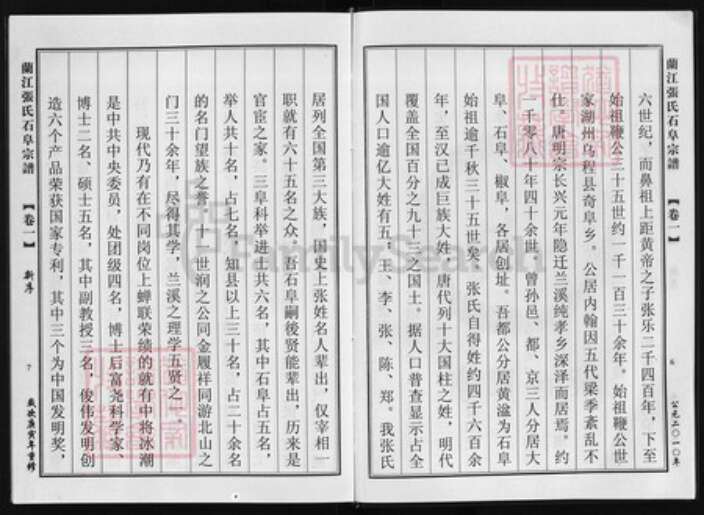 蘭江張氏石阜宗譜
【卷一】
6
公元二〇一〇年
六世纪，而鼻祖上距黄帝之子张乐二千四百年，下至
始祖鞭公三十五世约一千一百三十余年。始祖鞭公世
家湖州乌程县奇阜乡。公居内翰因五代梁季紊乱不
仕。唐明宗长兴元年隐迁兰溪纯孝乡深泽而居焉。约
一千零八十年四十余世。曾孙邑、都、京三人分居大
阜、石阜、椒阜，各居创址。吾都公分居黄湓为石阜
始祖逾千秋三十五世矣。张氏自得姓约四千六百余
年，至汉已成巨族大姓，唐代列十大国柱之姓，明代
覆盖全国百分之九十三之国土。据人口普查显示占全
国人口逾亿大姓有五：王、李、张、陈、郑。我张氏
居列全国第三大族，国史上张姓名人辈出，仅宰相一
职就有六十五名之众，吾石阜嗣後贤能辈出，历来是
官宦之家。三阜科举进士共六名，其中石阜占五名，
举人共十名，占七名，知县以上三十名，占二十余名
的名门望族之誉。十一世润之公同金履祥同游北山之
门三十余年，尽得其学，兰溪之理学五贤之一。
现代乃有在不同岗位上蝉联荣绩的就有中将冰潮
是中共中央委员，处团级四名，博士后富尧科学家、
博士二名、硕士五名，其中副教授三名，俊伟发明创
造六个产品荣获国家专利，其中三个为中国发明奖，
蘭江張氏石阜宗譜
【卷一】
新序
7
歲次庚寅年重修
FamilySearch